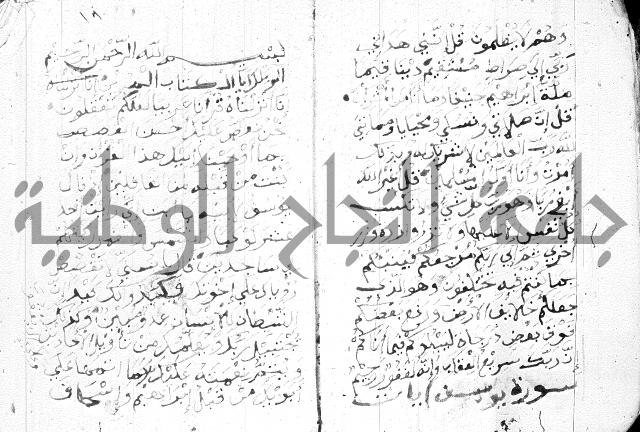 وهم لا يظلمون قل إنني هداني
ربي إلى صراط مستقيم دينا قيما
ملة إبراهيم حنيفا وما
قل إن صلاتي ونسكي ومحياي ومماتي
لله رب العالمين لا شريك له وبذلك
أمرت وأنا أول المسلمين قل أغير الله
أبغي ربا وهو رب كل شيء ولا تكسب
كل نفس إلا عليها ولا تزر وازرة وزر
أخرى ثم إلى ربكم مرجعكم فينبئكم
بما كنتم فيه تختلفون وهو الذي
جعلكم خلائف الأرض ورفع بعضكم
فوق بعض درجات ليبلوكم فيما آتاكم
إن ربك سريع العقاب وإنه لغفور رحيم
سورة يوسف
١٨
بسم الله الرحمن الرحيم
الر تلك آيات الكتاب المبين إنا أنزلناه
إنا أنزلناه قرآنا عربيا لعلكم تعقلون
نحن نقص عليك أحسن القصص
بما أوحينا إليك هذا القرآن وإن
كنت من قبله لمن الغافلين إذ قال
يوسف لأبيه يا أبت إني رأيت أحد
عشر كوكبا والشمس والقمر رأيتهم
لي ساجدين قال يا بني لا تقصص
رؤياك على إخوتك فيكيدوا لك كيدا
إن الشيطان للإنسان عدو مبين وكذلك
يجتبيك ربك ويعلمك من تأويل الأحاديث
ويتم نعمته عليك كما أتمها على
أبويك من قبل إبراهيم وإسحاق
جامعة النجاح الوطنية